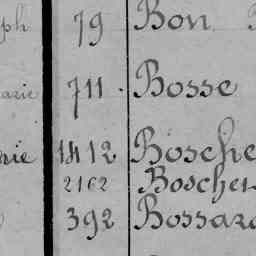 ph 79 Bon
arie 711. Bosse
rie 1412 Bosche
2162 Boscher
392 Bossard